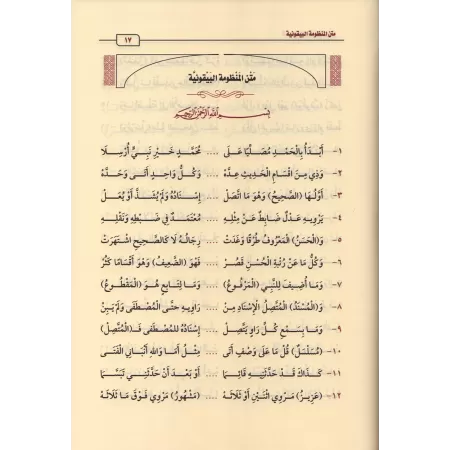 متن المنظومة البيقونية
١٧
مَتْنُ المَنْظُومَةِ البَيْقُونِيَّةِ
بِسْمِ اللَّهِ الرَّحْمَنِ الرَّحِيمِ
١- أَبْدَأُ بِالْحَمْدِ مُصَلِّيًا عَلَى .... مُحَمَّدٍ خَيْرِ نَبِيٍّ أُرْسِلَا
٢- وَذِي مِنَ أقْسَامِ الْحَدِيثِ عِدَّهْ .... وَكُلُّ وَاحِدٍ أَتَى وَحَدَّهْ
٣- أَوَّلُهَا (الصَّحِيحُ) وَهْوَ مَا اتَّصَلْ .... إِسْنَادُهُ وَلَمْ يَشُذَّ أَوْ يُعَلْ
٤- يَرْوِيهِ عَدْلٌ ضَابِطٌ عَنْ مِثْلِهِ .... مُعْتَمَدٌ فِي ضَبْطِهِ وَنَقْلِهِ
٥- وَ(الْحَسَنُ) الْمَعْرُوفُ طُرْقًا وَغَدَتْ .... رِجَالُهُ لَا كَالصَّحِيحِ اشْتَهَرَتْ
٦- وَكُلُّ مَا عَنْ رُتْبَةِ الْحُسْنِ قَصُرْ .... فَهْوَ (الضَّعِيفُ) وَهْوَ أَقْسَامًا كَثُرْ
٧- وَمَا أُضِيفَ لِلنَّبِيِّ (الْمَرْفُوعُ) .... وَمَا لِتَابِعٍ هُوَ (الْمَقْطُوعُ)
٨- وَ(الْمُسْنَدُ) الْمُتَّصِلُ الْإِسْنَادِ مِنْ .... رَاوِيهِ حَتَّى الْمُصْطَفَى وَلَمْ يَبِنْ
٩- وَمَا بِسَمْعِ كُلِّ رَاوٍ يَتَّصِلْ .... إِسْنَادُهُ لِلْمُصْطَفَى فَـ(الْمُتَّصِلْ)
١٠- (مُسَلْسَلٌ) قُلْ مَا عَلَى وَصْفٍ أَتَى .... مِثْلُ أَمَا وَاللهِ أَنْبَانِي الْفَتَى
١١- كَذَاكَ قَدْ حَدَّثَنِيهِ قَائِمًا .... أَوْ بَعْدَ أَنْ حَدَّثَنِي تَبَسَّمَا
١٢- (عَزِيزُ) مَرْوِي اثْنَيْنِ أَوْ ثَلَاثَهْ .... (مَشْهُورُ) مَرْوِي فَوْقَ مَا ثَلَاثَهْ